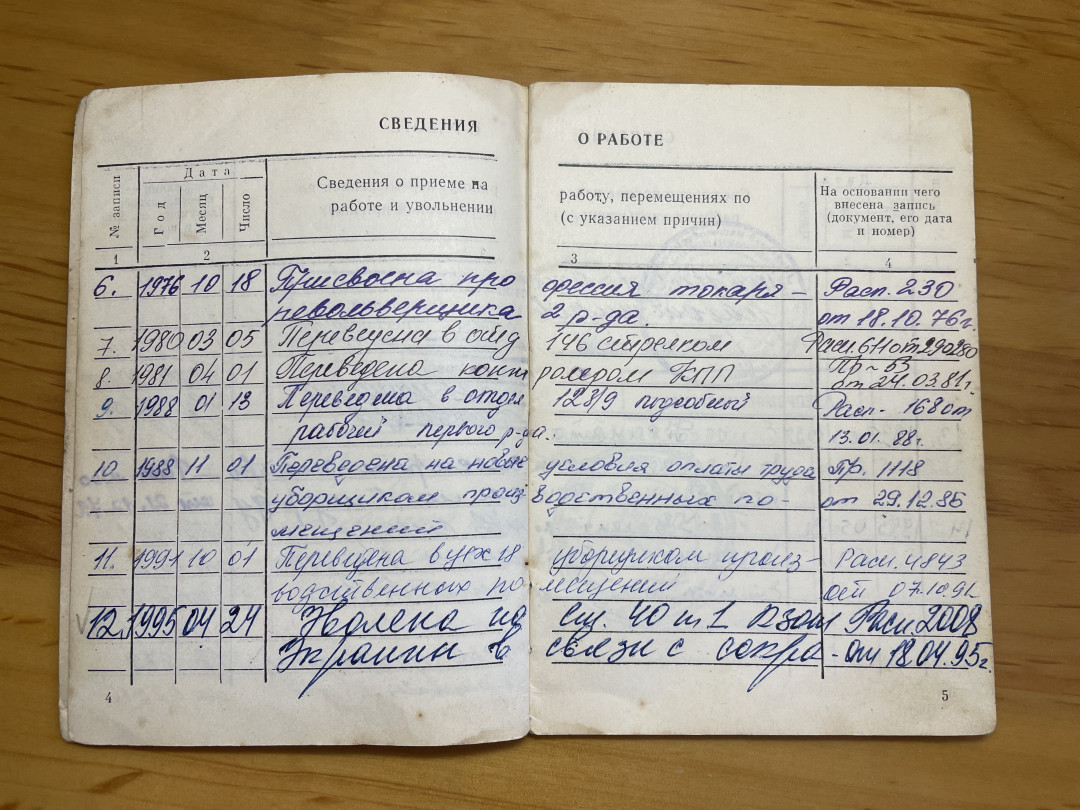 СВЕДЕНИЯ О РАБОТЕ
№ записи
Дата
Год
Месяц
Число
Сведения о приеме на работу, перемещениях по
работе и увольнении (с указанием причин)
На основании чего
внесена запись
(документ, его дата
и номер)
1 2 3 4
6. 1976 10 18 Присвоена профессия токаря- Расп. 230
револьверщика 2 р-да. от 18.10.76г.
7. 1980 03 05 Переведена в отд 146 стрелком Расп. 611 от 290280
8. 1981 04 01 Переведена контролером КПП Пр-53
от 24.03.81г.
9. 1988 01 13 Переведена в отдел 128/9 подсобный Расп. 168 от
рабочий первого р-да. 13.01.88г.
10. 1988 11 01 Переведена на новые условия оплаты труда Пр. 1118
уборщиком производственных по- от 29.12.86
мещений
11. 1991 10 01 Переведена в цех 18 уборщиком произ- Расп. 4843
водственных помещений от 07.10.91
12. 1995 04 24 Уволена по ст. 40 п 1 КЗом Расп 2008
Украины в связи с сокра- от 18.04.95г.
4
5